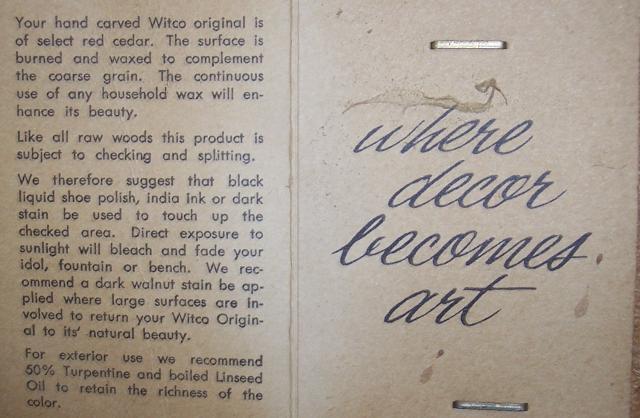 Your hand carved Witco original is
of select red cedar. The surface is
burned and waxed to complement
the coarse grain. The continuous
use of any household wax will en-
hance its beauty.
Like all raw woods this product is
subject to checking and splitting.
We therefore suggest that black
liquid shoe polish, india ink or dark
stain be used to touch up the
checked area. Direct exposure to
sunlight will bleach and fade your
idol, fountain or bench. We rec-
ommend a dark walnut stain be ap-
plied where large surfaces are in-
volved to return your Witco Origin-
al to its' natural beauty.
For exterior use we recommend
50% Turpentine and boiled Linseed
Oil to retain the richness of the
color.
where
decor
becomes
art